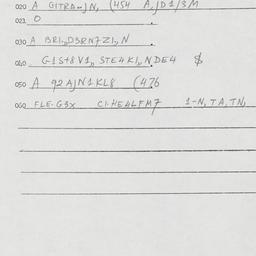 020 A GITRA-JN, (454 A,JD1/3M
021 O
030 A BRI,,D3RN7ZI,,N
040 G1St8V1,, STE4KI,,NDE4 $
050 A 92AJN1KL8 (476
060 FLE-G3X CI-HE4LFM7 1-N,TA,TN,